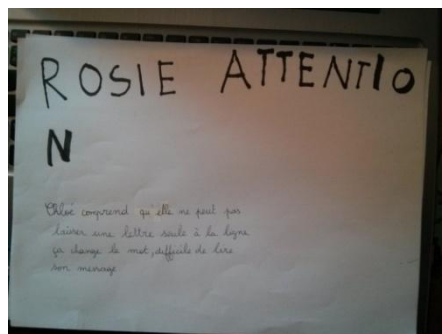 ROSIE ATTENTIO
N
Chloé comprend qu'elle ne peut pas
laisser une lettre seule à la ligne
ça change le mot, difficile de lire
son message